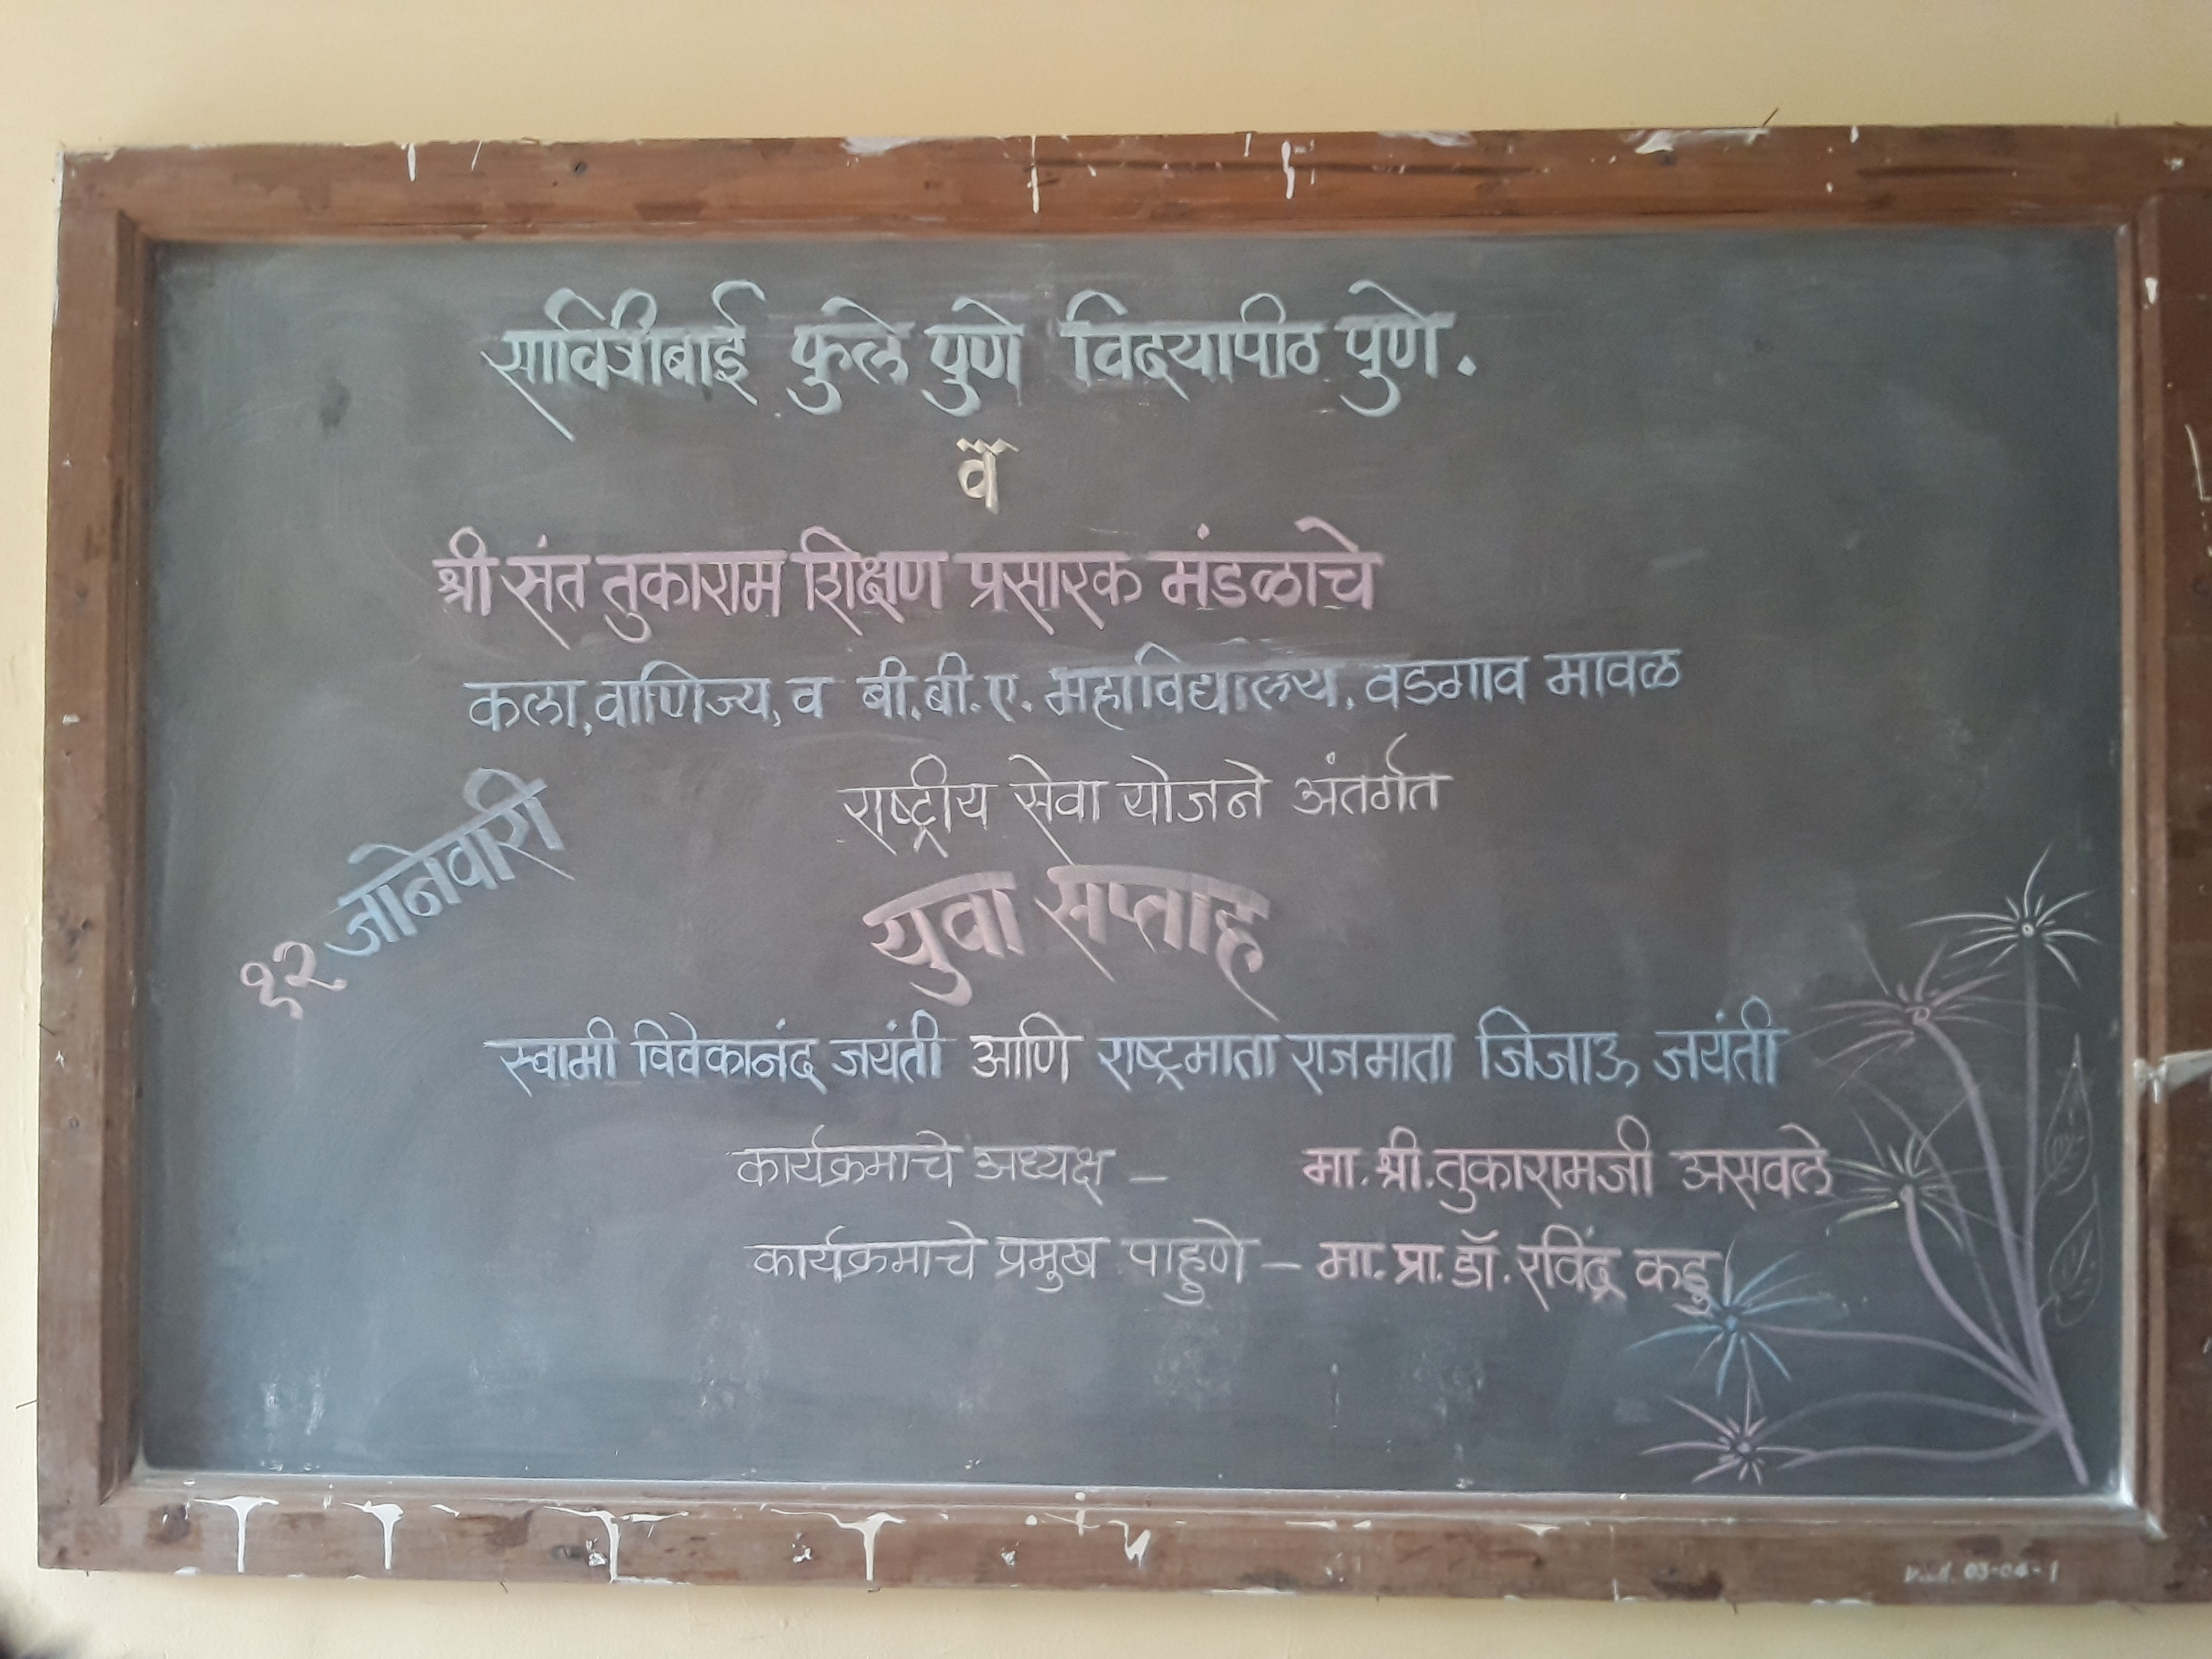 सावित्रीबाई फुले पुणे विद्यापीठ पुणे.
व
श्री संत तुकाराम शिक्षण प्रसारक मंडळाचे
कला, वाणिज्य, व बी.बी.ए. महाविद्यालय, वडगाव मावळ
राष्ट्रीय सेवा योजने अंतर्गत
१२ जानेवारी
युवा सप्ताह
स्वामी विवेकानंद जयंती आणि राष्ट्रमाता राजमाता जिजाऊ जयंती
कार्यक्रमाचे अध्यक्ष – मा. श्री. तुकारामजी असवले
कार्यक्रमाचे प्रमुख पाहुणे – मा. प्रा. डॉ. रविंद्र कडु
03-04-1